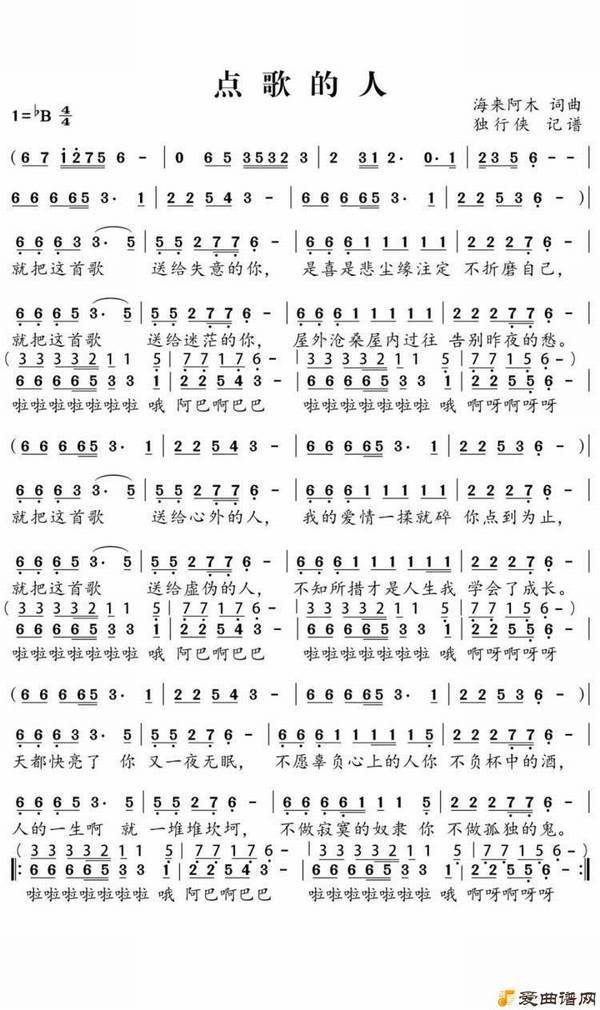 点歌的人
1=♭B 4/4
海来阿木 词曲
独行侠 记谱
( 6 7 i 2 7 5 6 - | 0 6 5 3 5 3 2 3 | 2 3 1 2· 0· 1 | 2 3 5 6 - - |
6 6 6 6 5 3· 1 | 2 2 5 4 3 - | 6 6 6 6 5 3· 1 | 2 2 5 3 6 - ) |
6 6 6 3 3· 5 | 5 5 2 7 7 6 - | 6 6 6 1 6 1 1 1 | 2 2 2 7 6 - |
就把这首歌 送给失意的你, 是喜是悲尘缘注定 不折磨自己,
6 6 6 3 3· 5 | 5 5 2 7 7 6 - | 6 6 6 1 1 1 1 1 | 2 2 2 7 6 - |
就把这首歌 送给迷茫的你, 屋外沧桑屋内过往 告别昨夜的愁。
( 3 3 3 3 3 2 1 1 5 | 7 7 1 7 6 - | 3 3 3 3 3 2 1 1 5 | 7 7 1 5 6 - )
6 6 6 6 6 5 3 3 1 | 2 2 5 4 3 - | 6 6 6 6 6 5 3 3 1 | 2 2 2 7 6 - |
啦啦啦啦啦啦啦 哦 阿巴啊巴巴 啦啦啦啦啦啦啦 哦 啊呀啊呀呀
6 6 6 6 5 3· 1 | 2 2 5 4 3 - | 6 6 6 6 5 3· 1 | 2 2 5 3 6 - ) |
6 6 6 3 3· 5 | 5 5 2 7 7 6 - | 6 6 6 1 1 1 1 1 | 2 2 2 7 6 - |
就把这首歌 送给心外的人, 我的爱情一揉就碎 你点到为止,
6 6 6 3 3· 5 | 5 5 2 7 7 6 - | 6 6 6 1 1 1 1 1 1 | 2 2 2 7 6 - |
就把这首歌 送给虚伪的人, 不知所措才是人生我 学会了成长。
( 3 3 3 3 3 2 1 1 5 | 7 7 1 7 6 - | 3 3 3 3 3 2 1 1 5 | 7 7 1 5 6 - )
6 6 6 6 6 5 3 3 1 | 2 2 5 4 3 - | 6 6 6 6 6 5 3 3 1 | 2 2 2 7 6 - |
啦啦啦啦啦啦啦 哦 阿巴啊巴巴 啦啦啦啦啦啦啦 哦 啊呀啊呀呀
( 6 6 6 6 5 3· 1 | 2 2 5 4 3 - | 6 6 6 6 5 3· 1 | 2 2 5 3 6 - ) |
6 6 6 3 3· 1 | 5 5 2 7 6 - | 6 6 6 1 1 1 1 1 5 | 2 2 2 7 6 - |
天都快亮了 你 又一夜无眠, 不愿辜负心上的人你 不负杯中的酒,
6 6 6 3 3· 5 | 5 5 2 7 6 - | 6 6 6 6 1 1 1 1 | 2 2 2 7 6 - |
人的一生啊 就 一堆堆坎坷, 不做寂寞的奴隶 你 不做孤独的鬼。
( 3 3 3 3 3 2 1 1 5 | 7 7 1 7 6 - | 3 3 3 3 3 2 1 1 5 | 7 7 1 5 6 - )
‖: 6 6 6 6 6 5 3 3 1 | 2 2 5 4 3 - | 6 6 6 6 6 5 3 3 1 | 2 2 2 7 6 - :‖
啦啦啦啦啦啦啦 哦 阿巴啊巴巴 啦啦啦啦啦啦啦 哦 啊呀啊呀呀
爱曲谱网